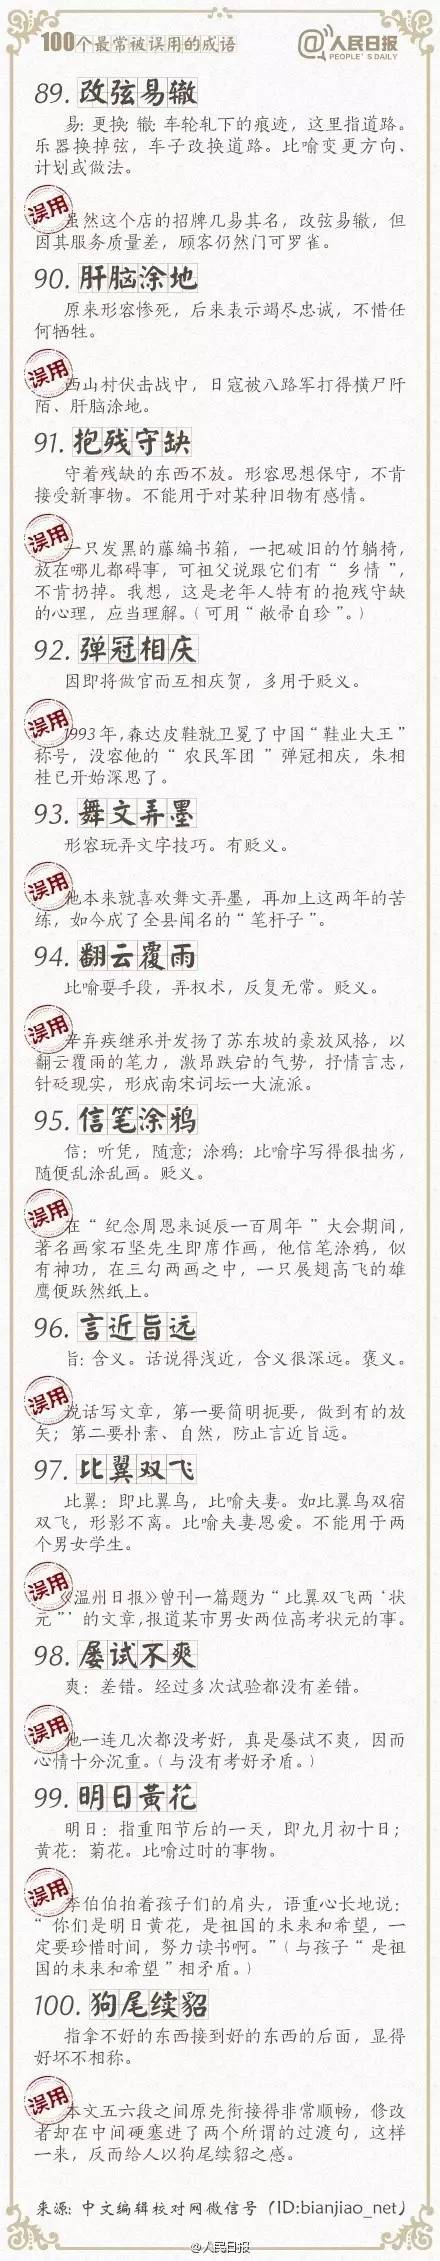 100个最常被误用的成语
@人民日报
PEOPLE'S DAILY
89. 改弦易辙
易：更换；辙：车轮轧下的痕迹，这里指道路。
乐器换掉弦，车子改换道路。比喻变更方向、
计划或做法。
误用
虽然这个店的招牌几易其名，改弦易辙，但
因其服务质量差，顾客仍然门可罗雀。
90. 肝脑涂地
原来形容惨死，后来表示竭尽忠诚，不惜任
何牺牲。
误用
西山村伏击战中，日寇被八路军打得横尸阡
陌、肝脑涂地。
91. 抱残守缺
守着残缺的东西不放。形容思想保守，不肯
接受新事物。不能用于对某种旧物有感情。
误用
一只发黑的藤编书箱，一把破旧的竹躺椅，
放在哪儿都碍事，可祖父说跟它们有“乡情”，
不肯扔掉。我想，这是老年人特有的抱残守缺
的心理，应当理解。（可用“敝帚自珍”。）
92. 弹冠相庆
因即将做官而互相庆贺，多用于贬义。
误用
1993年，森达皮鞋就卫冕了中国“鞋业大王”
称号，没容他的“农民军团”弹冠相庆，朱相
桂已开始深思了。
93. 舞文弄墨
形容玩弄文字技巧。有贬义。
误用
他本来就喜欢舞文弄墨，再加上这两年的苦
练，如今成了全县闻名的“笔杆子”。
94. 翻云覆雨
比喻耍手段，弄权术，反复无常。贬义。
误用
辛弃疾继承并发扬了苏东坡的豪放风格，以
翻云覆雨的笔力，激昂跌宕的气势，抒情言志，
针砭现实，形成南宋词坛一大流派。
95. 信笔涂鸦
信：听凭，随意；涂鸦：比喻字写得很拙劣，
随便乱涂乱画。贬义。
误用
在“纪念周恩来诞辰一百周年”大会期间，
著名画家石坚先生即席作画，他信笔涂鸦，似
有神功，在三勾两画之中，一只展翅高飞的雄
鹰便跃然纸上。
96. 言近旨远
旨：含义。话说得浅近，含义很深远。褒义。
误用
说话写文章，第一要简明扼要，做到有的放
矢；第二要朴素、自然，防止言近旨远。
97. 比翼双飞
比翼：即比翼鸟，比喻夫妻。如比翼鸟双宿
双飞，形影不离。比喻夫妻恩爱。不能用于两
个男女学生。
误用
《温州日报》曾刊一篇题为“比翼双飞两‘状
元’”的文章，报道某市男女两位高考状元的事。
98. 屡试不爽
爽：差错。经过多次试验都没有差错。
误用
他一连几次都没考好，真是屡试不爽，因而
心情十分沉重。（与没有考好矛盾。）
99. 明日黄花
明日：指重阳节后的一天，即九月初十日；
黄花：菊花。比喻过时的事物。
误用
李伯伯拍着孩子们的肩头，语重心长地说：
“你们是明日黄花，是祖国的未来和希望，一
定要珍惜时间，努力读书啊。”（与孩子“是祖
国的未来和希望”相矛盾。）
100. 狗尾续貂
指拿不好的东西接到好的东西的后面，显得
好坏不相称。
误用
本文五六段之间原先衔接得非常顺畅，修改
者却在中间硬塞进了两个所谓的过渡句，这样
一来，反而给人以狗尾续貂之感。
来源：中文编辑校对网微信号（ID:bianjiao_net）
@人民日报